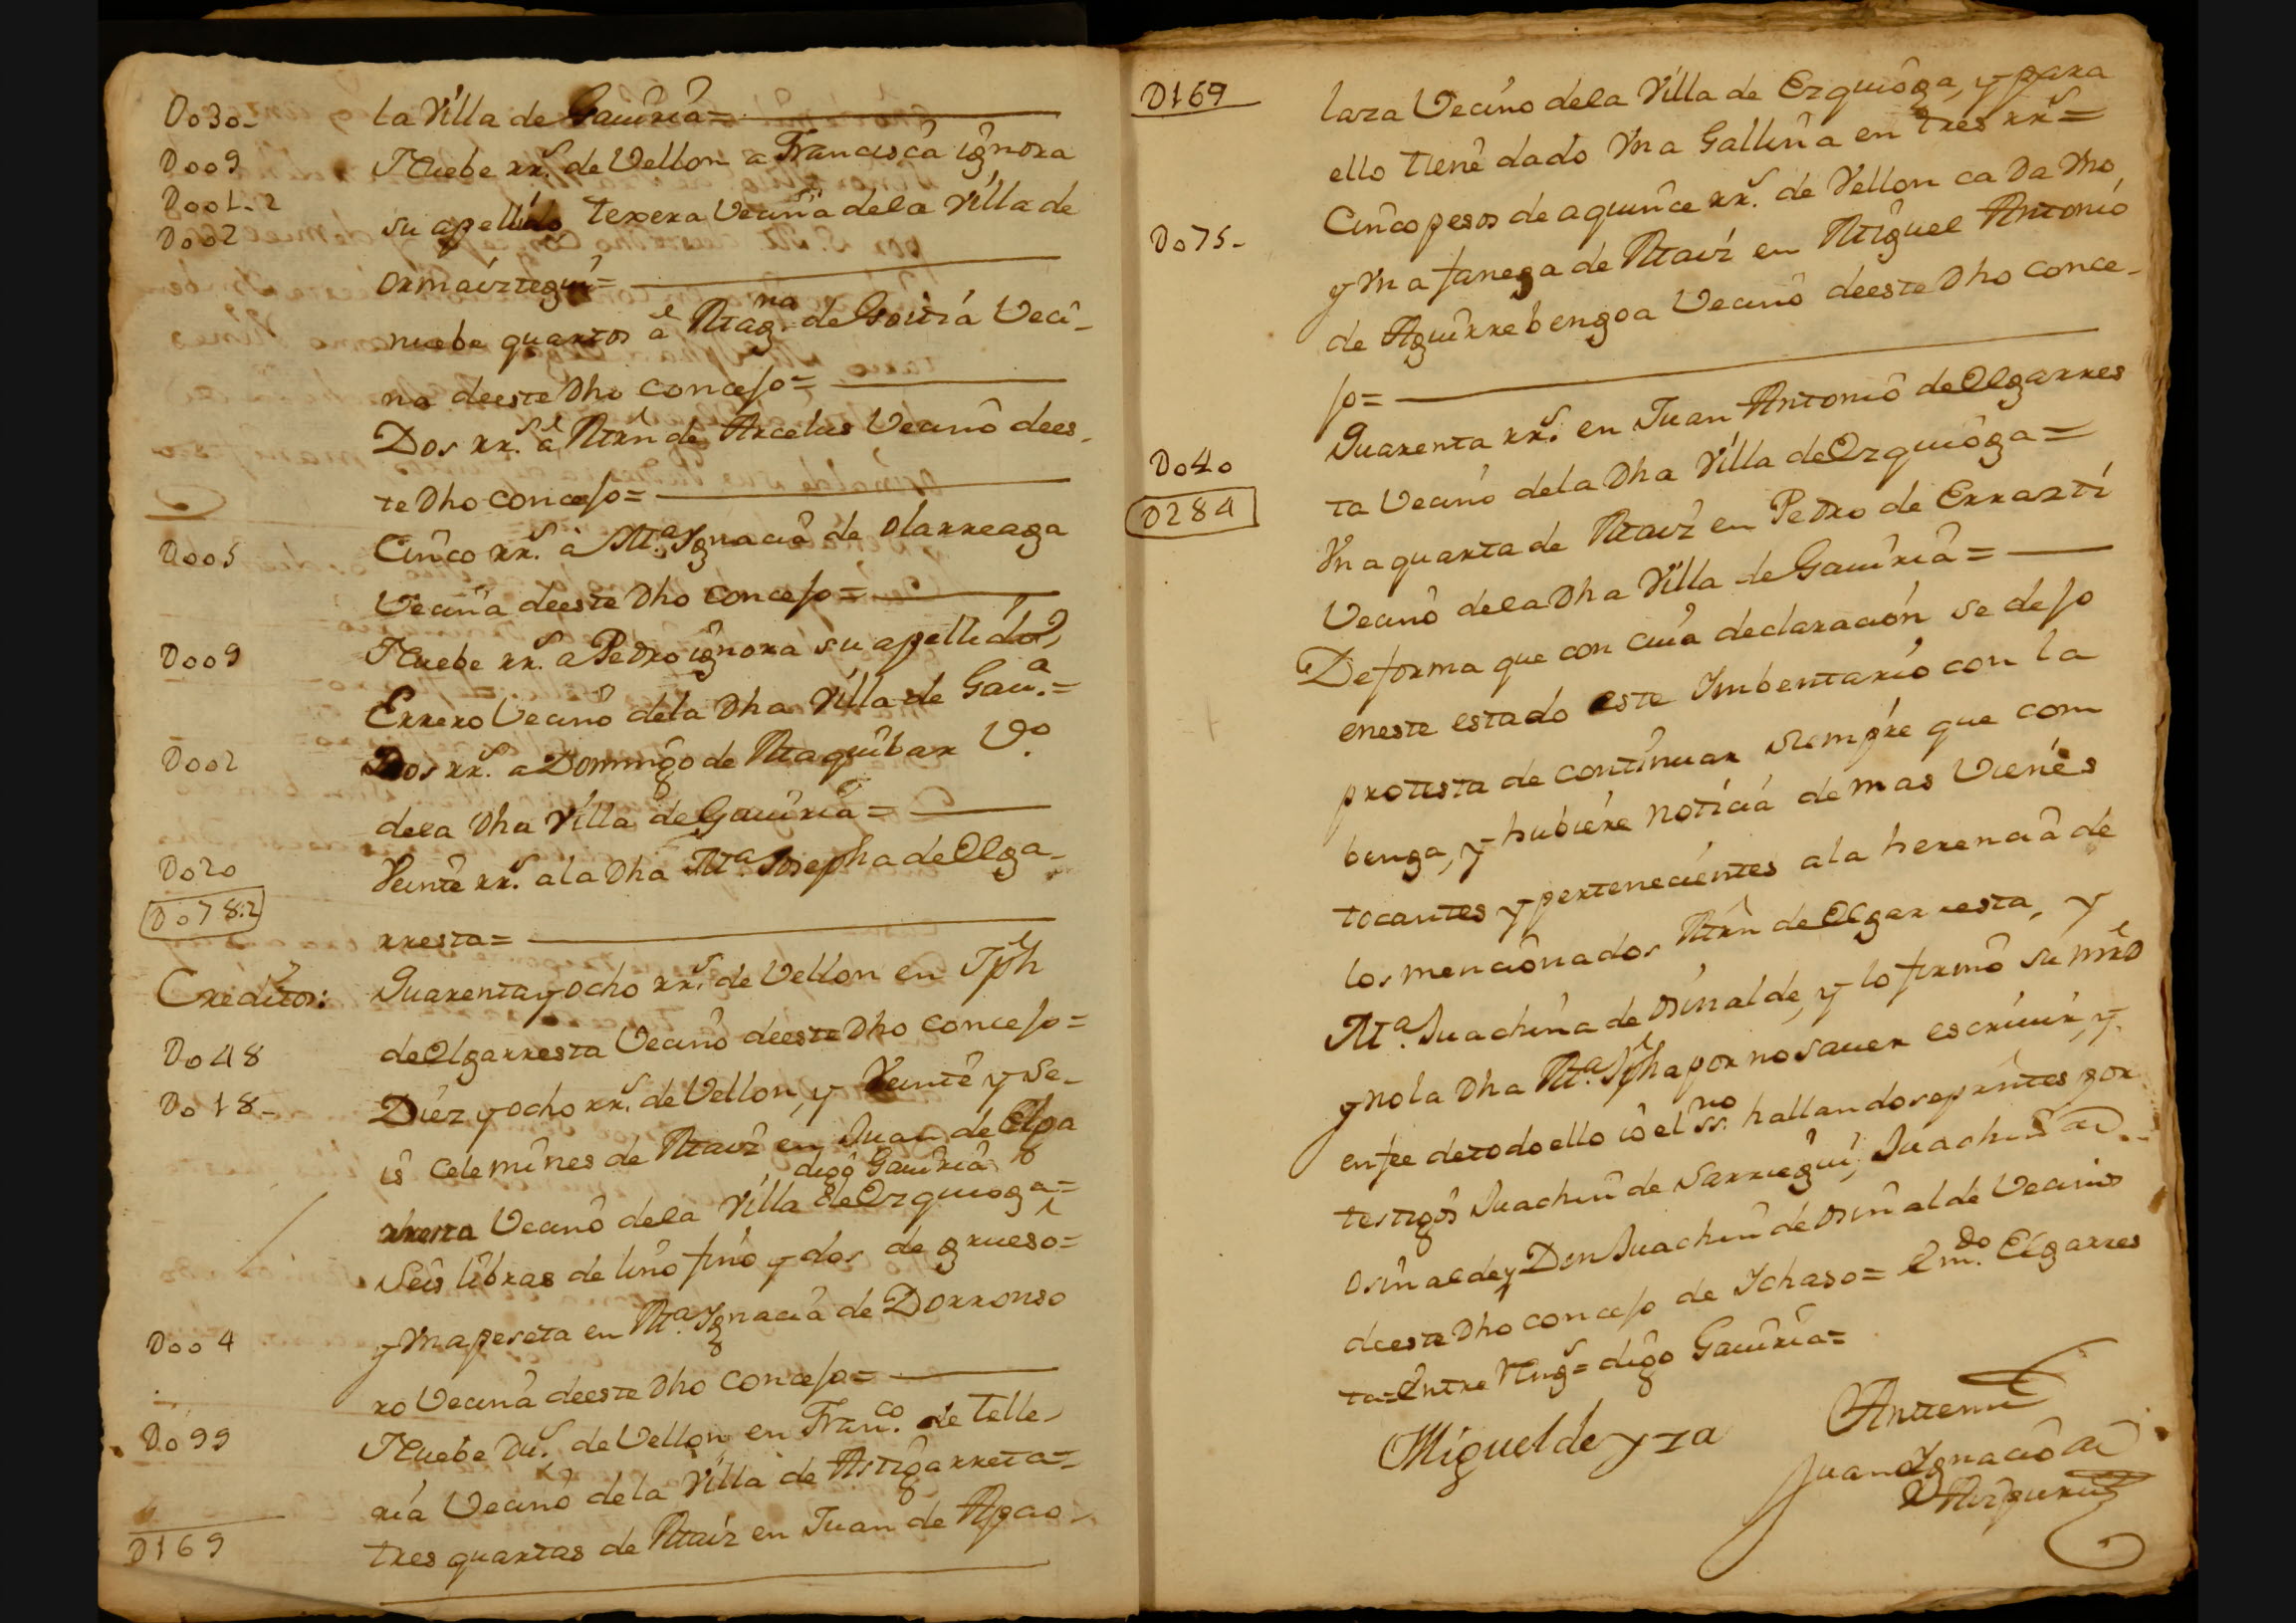 Do30- la Villa de Gauiria=
Do09 Nuebe rr.s de Vellon a Francisca ignora
Do01-2 su apellido Texera Vecina dela Villa de
Do02
ormaiztegui=
nuebe quartos a Mag.na de Veci-
na deeste Dho concejo=
Dos rr.s a Mrn de Arcelus Vecino dees-
te Dho concejo=
Do05 Cinco rr.s a M.a Ygnacia de olarreaga
Vecina deeste Dho concejo=
Do09 Nuebe rr.s a Pedro ignora su apellido,
Errero Vecino dela Dha Villa de Gau.a=
Do02 Dos rr.s a Domingo de Maquibar Vo.
dela Dha Villa de Gauiria=
Do20 Veinte rr.s ala Dha M.a Josepha de Elga-
Do78:2
rresta=
Creditos: Quarentayocho rr.s de Vellon en Jph
Do48 de Elgarresta Vecino deeste Dho concejo=
Do18- Diez yocho rr.s de Vellon, y Veinte y se-
is celemines de Maiz en Juan de Elga
digo Gauiria
rresta Vecino dela Villa de Ezquioga=
Seis libras de lino fino y dos de grueso=
Do04 y Vna peseta en M.a Ygnacia de Dorronso
ro Vecina deeste Dho concejo=
Do99 Nuebe Du.s de Vellon en Fran.co de Telle-
ria Vecino dela Villa de Astigarreta=
D169 tres quartas de Maiz en Juan de Apao-
D169 laza Vecino dela Villa de Ezquioga, y para
ello tiene dado Vna Gallina en tres rr.s=
Do75- Cinco pesos de aquince rr.s de Vellon ca Da Vno,
y Vna fanega de Maiz en Miguel Antonio
de Aguirrebengoa Vecino deeste Dho conce-
jo=
Do40 Quarenta rr.s en Juan Antonio de Elgarres
D284 ta Vecino dela Dha Villa de Ezquioga=
Vna quarta de Maiz en Pedro de Errazti
Vecino dela Dha Villa de Gauiria=
Deforma que con cuia declaracion se dejo
eneste estado este Imbentario con la
protesta de continuar siempre que com
benga, y hubiere noticia de mas Vienes
tocantes y pertenecientes ala herencia de
los mencionados Mrn de Elgarresta, y
M.a Juachina de osinalde, y lo firmo su mrd
y no la Dha M.a Jpha por no sauer escriuir, y
enfee detodo ello io el ss.no hallandose prntes por
testigos Juachin de Sarriegui, Juachin de
osinalde y Don Juachin de osinalde Vecinos
deeste Dho concejo de Ichaso= Em.do Elgarres
ta= Entre Rengs= digo Gauiria=
Miguel de yza
Antemi
Juan Ygnacio de
Aizpuru